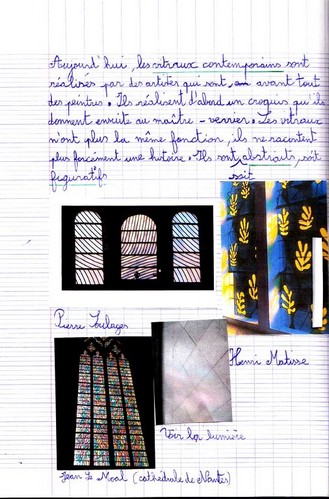 Aujourd'hui, les vitraux contemporains sont
réalisés par des artistes qui sont, avant tout
des peintres. Ils réalisent d'abord un croquis qu'ils
donnent ensuite au maître-verrier. Les vitraux
n'ont plus la même fonction, ils ne racontent
plus forcément une histoire. Ils sont abstraits, soit
figuratifs soit
Pierre Soulages
Henri Matisse
Voir la lumière
Jean Le Moal (cathédrale de Nantes)